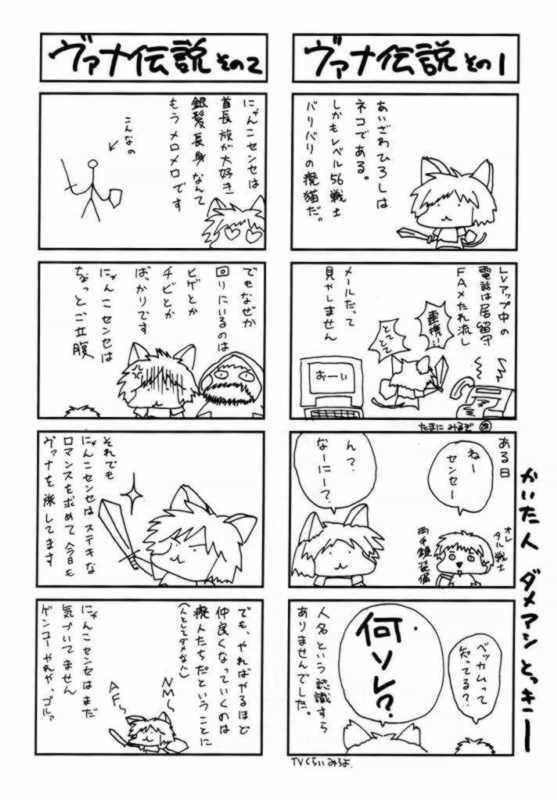 ヴァナ伝説 その1
あいざわひろしは
ネコである。
しかもレベル56戦士
バリバリの廃猫だ。
Lvアップ中の
電話は居留守
FAXたれ流し
メールだって
見やしません
連携!!
とてとて
おーい
たまに みるぞ
ある日
ねー
センセー
ん?
なーにー?
オレ
タル戦士
両手鎌装備
ベッカムって
知ってる?
何ソレ?
人名という認識すら
ありませんでした。
TVくらいみろよ
ヴァナ伝説 その2
にゃんこセンセは
首長族が大好き
銀髪長身なんて
もうメロメロです
こんなの
でもなぜか
回りにいるのは
ヒゲとか
チビとか
ばっかりです
にゃんこセンセは
ちょっとご立腹
それでも
にゃんこセンセはステキな
ロマンスを求めて今日も
ヴァナを旅してます
でも、やればやるほど
仲良くなっていくのは
廃人たちだということに
(人としてダメな人)
にゃんこセンセはまだ
気づいてません
ゲンコーやれや、ゴルァ
NM〜
AF〜
かいた人 ダメアシ とっきー